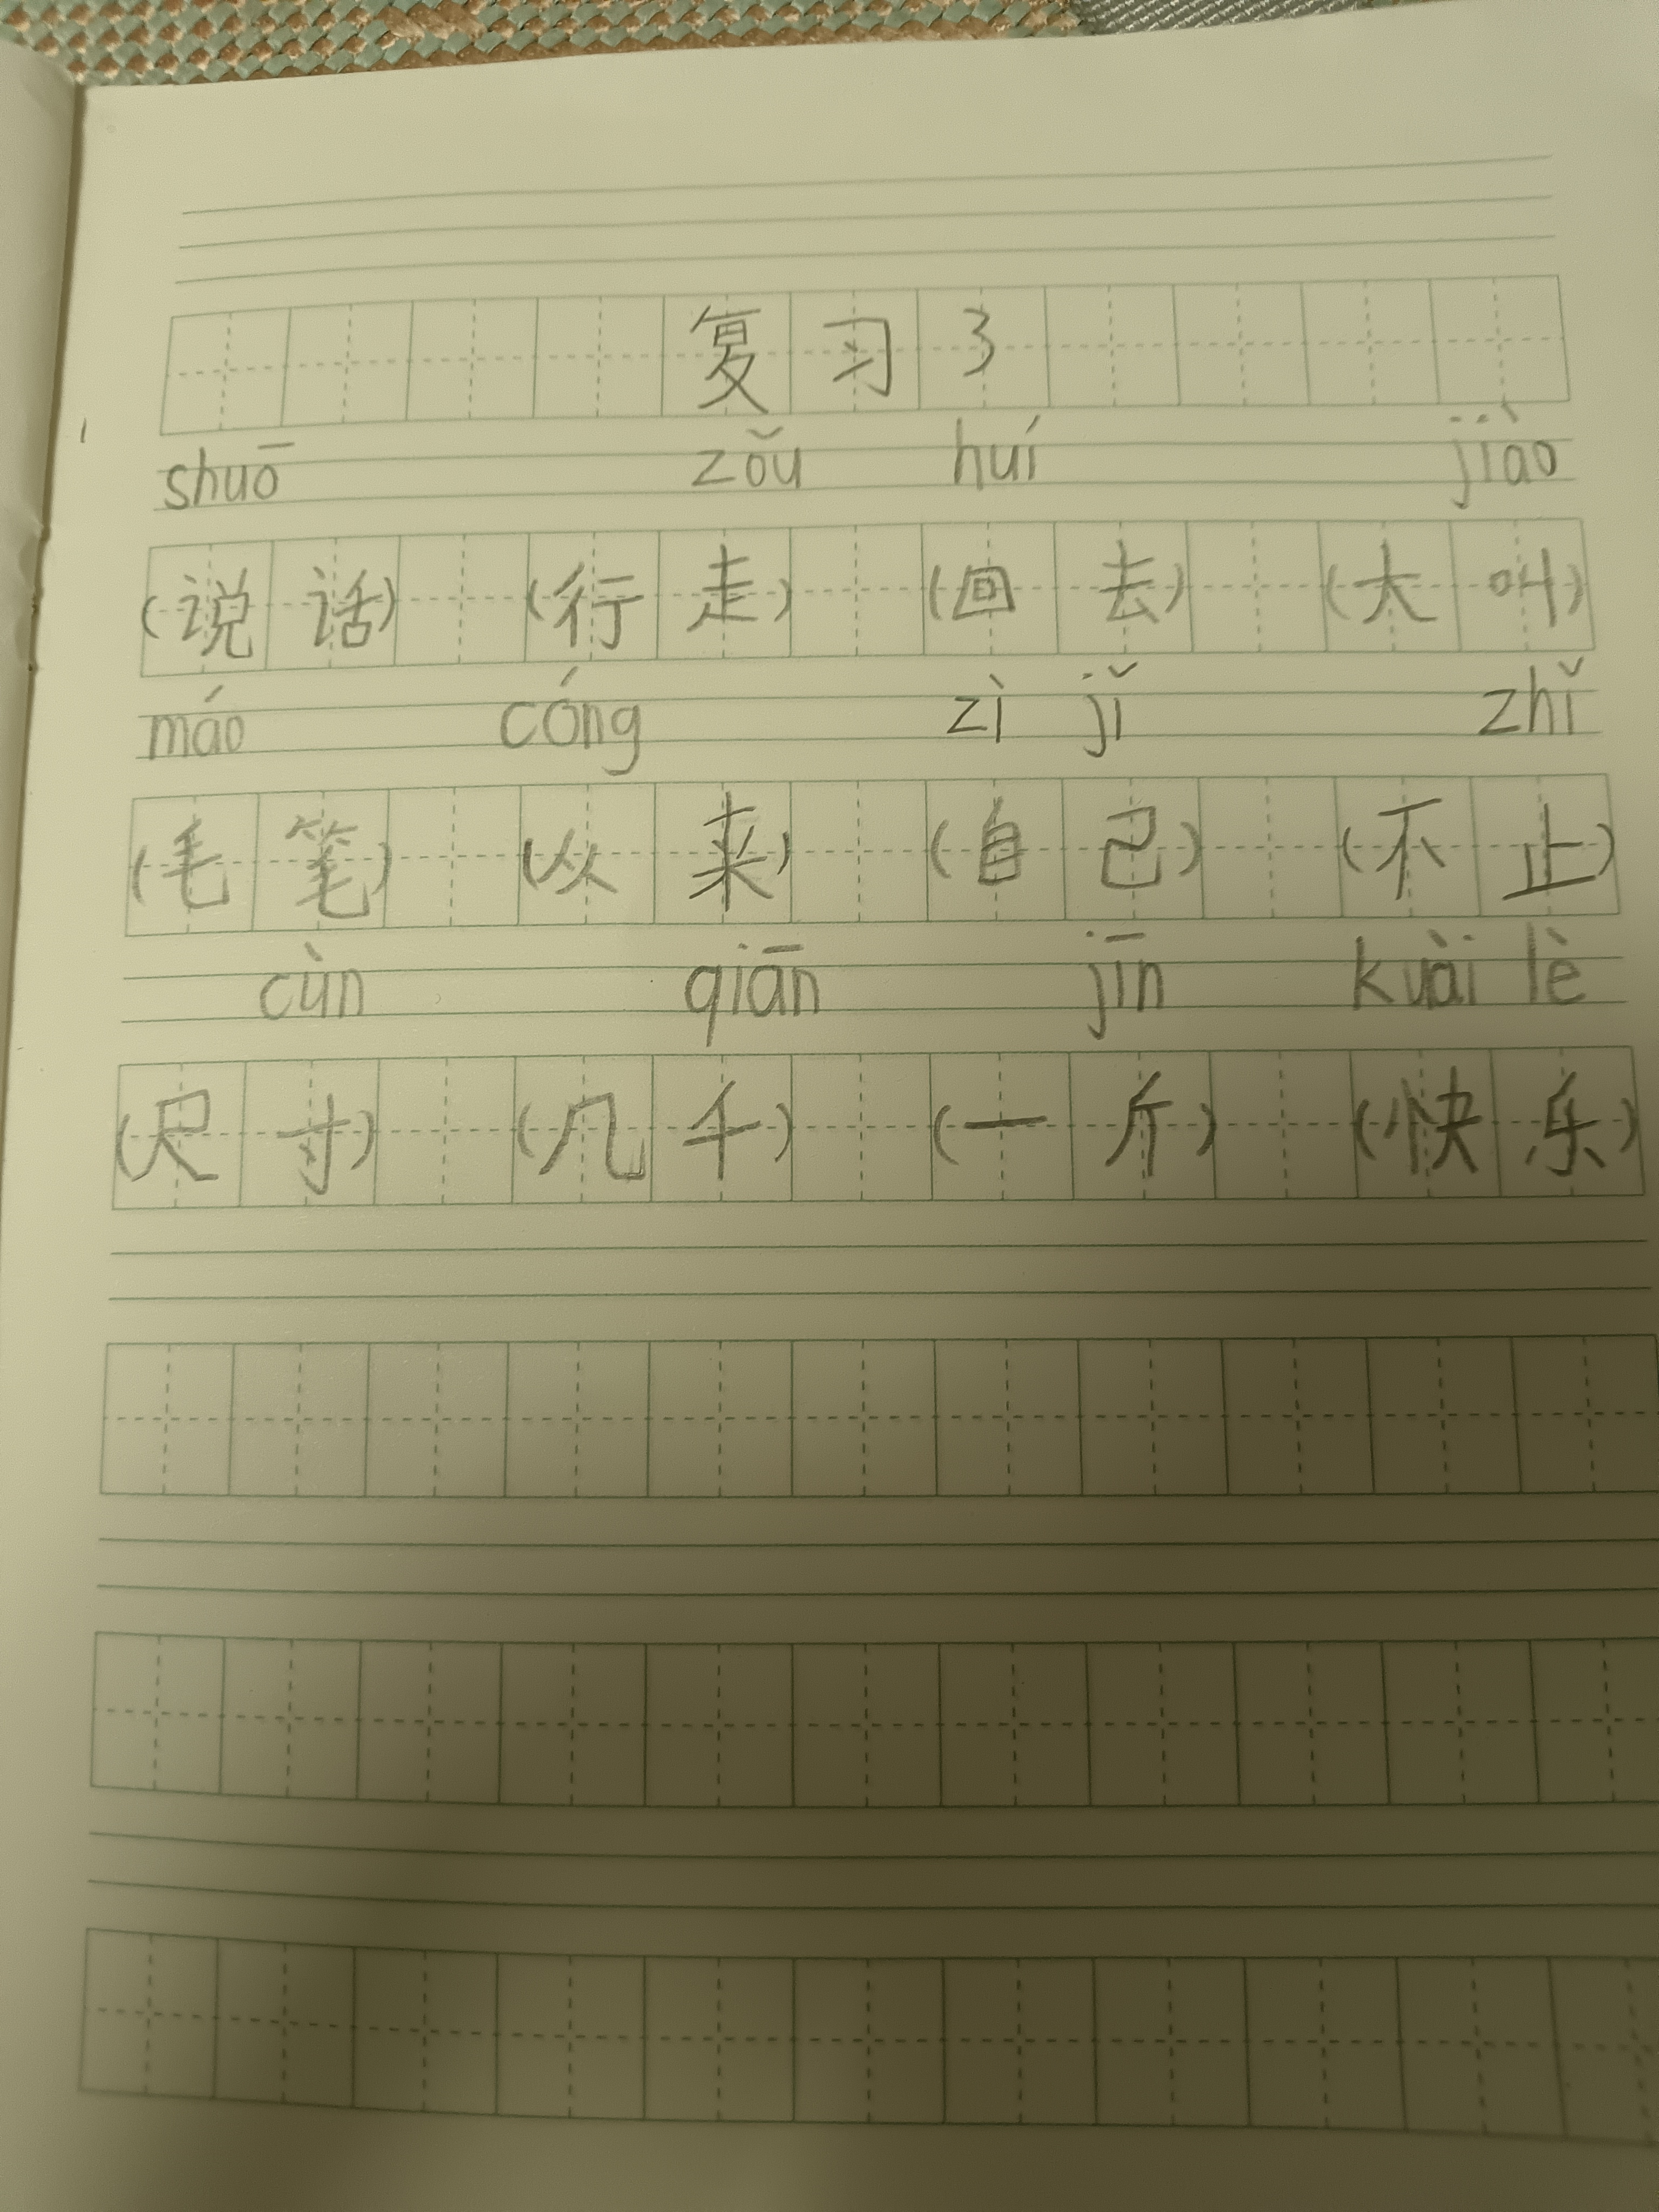 复习3
shuō zǒu huí jiào
(说话) (行走) (回去) (大叫)
máo cóng zì jǐ zhǐ
(毛笔) (从来) (自己) (不止)
cùn qiān jīn kuài lè
(尺寸) (几千) (一斤) (快乐)